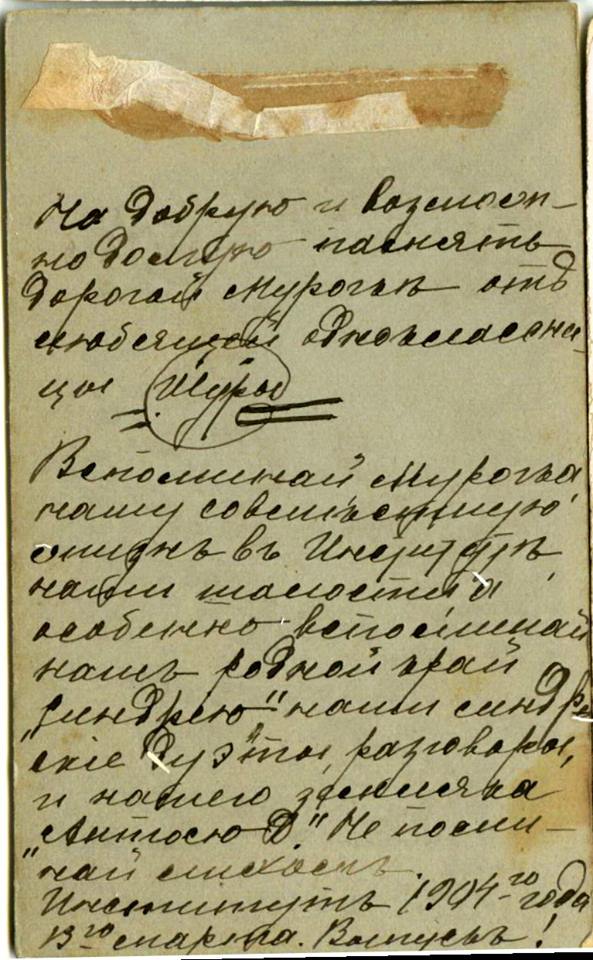 На добрую и возмож-
но долгую память
дорогой Мурочкѣ отъ
любящей одноклассни-
цы Шуры
Вспоминай Мурочка
нашу совмѣстную
жизнь въ Институтѣ,
наши шалости а
особенно вспоминай
нашъ родной край
наши
скіе дуэты, разговоры,
и нашего земляка
„Антосю Д." Не поми-
най лихомъ.
Институтъ 1904-го года
13го марта. Выпускъ!